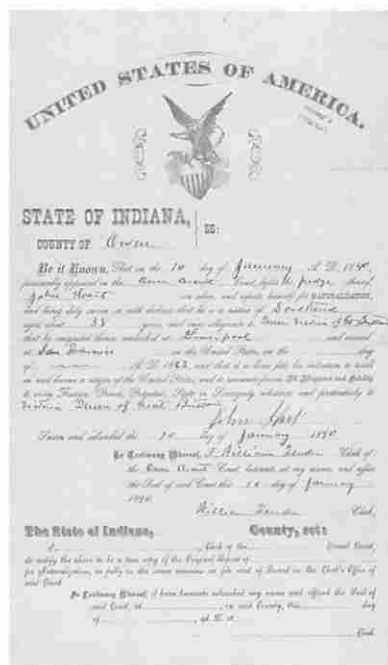 UNITED STATES OF AMERICA.
STATE OF INDIANA,
SS:
COUNTY OF Owen
Be it Known, That on the 10 day of January A. D. 1890,
personally appeared in the Owen Circuit Court, before the Judge thereof
John an alien, and applies herself for NATURALIZATION,
and being duly sworn as with declares that he is a native of Scotland
aged about 38 years, and owes allegiance to Queen Victoria of Gt. Britain
that he emigrated thence, embarked at Liverpool and arrived
at San Francisco in the United States, on the day
of A. D. 1883, and that it is bona fide his intention to
and become a citizen of the United States, and to renounce forever All Allegiance and Fidelity
to every Foreign Prince, Potentate, State or Sovereignty whatever and particularly to
Victoria Queen of Great Britain
John
Sworn and subscribed this 10 day of January 1890
In Testimony Whereof, I William Clerk of
the Owen Circuit Court, hereunto set my name, and affix
the Seal of said Court this 10 day of January
1890
William Clerk.
The State of Indiana, County, sct:
I Clerk of the Circuit Court,
do certify the above to be a true copy of the Original
for Naturalization, as fully as the same remains on file and of Record in the Clerk's Office of
said Court.
In Testimony Whereof, I have hereunto subscribed my name and affixed the Seal of
said Court, at in said County, this day
of A. D. 18
Clerk.